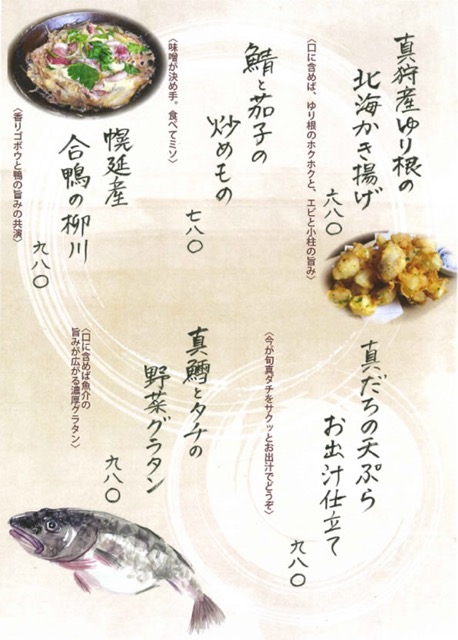 真狩産ゆり根の
北海かき揚げ
六八〇
〈口に含めば、ゆり根のホクホクと、エビと小柱の旨み〉
鯖と茄子の
炒めもの
七八〇
〈味噌が決め手。食べてミソ〉
幌延産
合鴨の柳川
九八〇
〈香りゴボウと鴨の旨みの共演〉
真だちの天ぷら
お出汁仕立て
九八〇
〈今が旬真ダチをサクッとお出汁でどうぞ〉
真鱈とタチの
野菜グラタン
九八〇
〈口に含めば魚介の
旨みが広がる濃厚グラタン〉